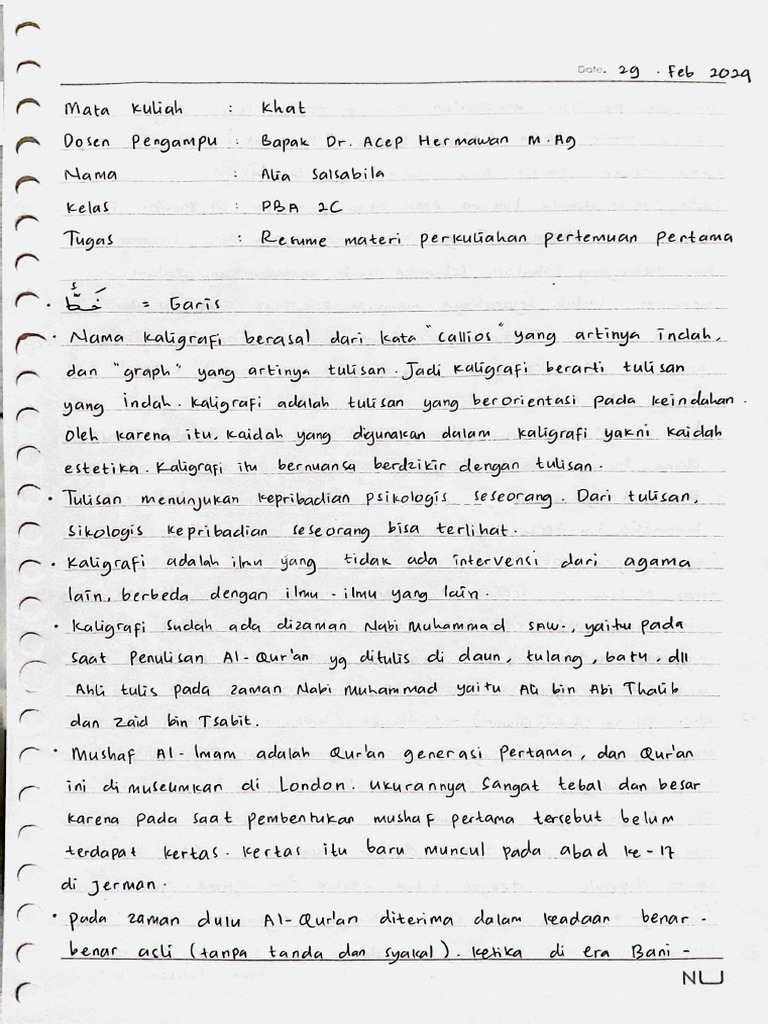 Date. 29 . Feb 2024
Mata kuliah : Khat
Dosen Pengampu : Bapak Dr. Acep Hermawan M.Ag
Nama : Alia Salsabila
Kelas : PBA 2C
Tugas : Resume materi perkuliahan pertemuan pertama
· خَطٌّ = Garis
· Nama kaligrafi berasal dari kata "callios" yang artinya indah,
dan "graph" yang artinya tulisan. Jadi kaligrafi berarti tulisan
yang indah. Kaligrafi adalah tulisan yang berorientasi pada keindahan.
Oleh karena itu, kaidah yang digunakan dalam kaligrafi yakni kaidah
estetika. Kaligrafi itu bernuansa berdzikir dengan tulisan.
· Tulisan menunjukan kepribadian psikologis seseorang. Dari tulisan,
sikologis kepribadian seseorang bisa terlihat.
· Kaligrafi adalah ilmu yang tidak ada intervensi dari agama
lain, berbeda dengan ilmu - ilmu yang lain.
· Kaligrafi sudah ada dizaman Nabi Muhammad SAW., yaitu pada
saat Penulisan Al-Qur'an yg ditulis di daun, tulang, batu, dll
Ahli tulis pada zaman Nabi Muhammad yaitu Ali bin Abi Thalib
dan Zaid bin Tsabit.
· Mushaf Al-Imam adalah Qur'an generasi Pertama, dan Qur'an
ini di museumkan di London. Ukurannya Sangat tebal dan besar
karena pada saat pembentukan mushaf pertama tersebut belum
terdapat kertas. Kertas itu baru muncul pada abad ke-17
di Jerman.
· Pada zaman dulu Al-Qur'an diterima dalam keadaan benar -
benar asli (tanpa tanda dan syakal). Ketika di era Bani -
NU